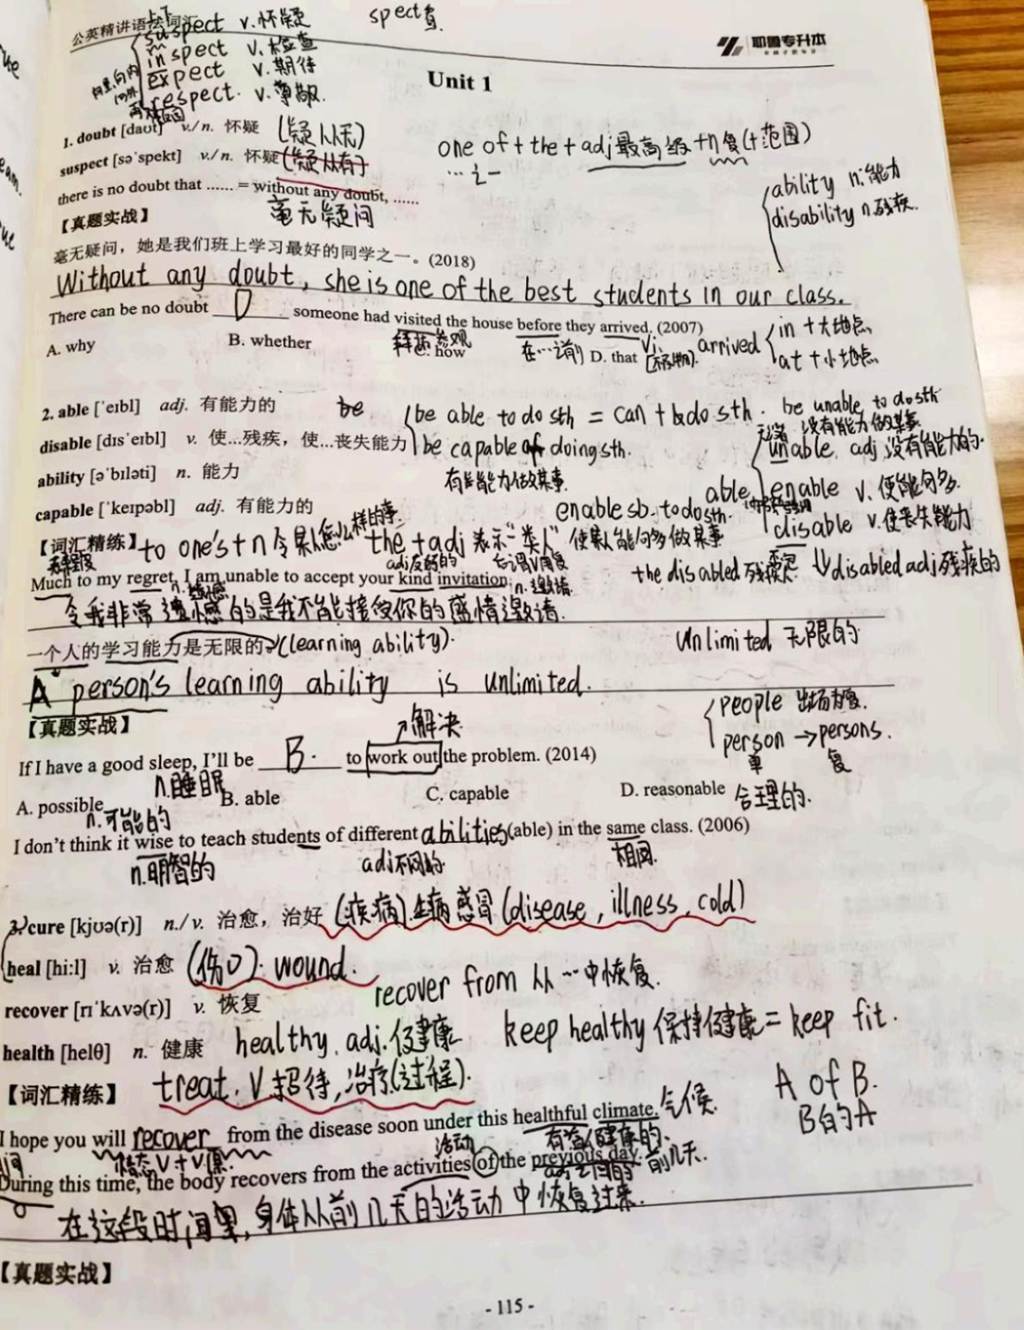 公英精讲语法词汇
suspect v.怀疑
spect 看
inspect v.检查
expect v.期待
respect. v.尊敬
耶鲁专升本
Unit 1
1. doubt [daʊt] v./n. 怀疑 (疑从无)
one of + the + adj最高级 + n复(+范围)
…之一
suspect [sə'spekt] v./n. 怀疑 (疑从有)
ability n.能力
disability n.残疾.
there is no doubt that ...... = without any doubt, ......
毫无疑问
【真题实战】
毫无疑问，她是我们班上学习最好的同学之一。(2018)
Without any doubt, she is one of the best students in our class.
There can be no doubt D someone had visited the house before they arrived. (2007)
A. why B. whether C. how D. that
拜访 参观 在…之前 vi. arrived
in + 大地点
at + 小地点
2. able ['eɪbl] adj. 有能力的
be able to do sth = can + do sth. be unable to do sth
没有能力做某事
disable [dɪs'eɪbl] v. 使...残疾，使...丧失能力
be capable of doing sth.
有能力做某事.
unable adj 没有能力的.
ability [ə'bɪləti] n. 能力
able enable v.使能够
capable ['keɪpəbl] adj. 有能力的
enable sb. to do sth.
使某人能够做某事
disable v.使丧失能力
【词汇精练】to one's + n 令某人怎么样的事. the + adj 表示“一类人”
the disabled 残疾人 disabled adj残疾的
Much to my regret, I am unable to accept your kind invitation.
n.遗憾 adj友好的 n.邀请.
令我非常遗憾的是我不能接受你的盛情邀请.
一个人的学习能力是无限的。(learning ability).
unlimited 无限的
A person's learning ability is unlimited.
【真题实战】
people
person → persons.
单 复
解决
If I have a good sleep, I'll be B. to work out the problem. (2014)
n.睡眠
A. possible B. able C. capable D. reasonable 合理的.
n.可能的
I don't think it wise to teach students of different abilities (able) in the same class. (2006)
n.明智的 adj不同的 相同.
3. cure [kjʊə(r)] n./ v. 治愈，治好 (疾病).生病 感冒 (disease, illness, cold)
heal [hi:l] v. 治愈 (伤口). wound.
recover [rɪ'kʌvə(r)] v. 恢复 recover from 从…中恢复.
health [helθ] n. 健康 healthy. adj.健康 keep healthy 保持健康 = keep fit.
【词汇精练】 treat. v.招待,治疗(过程).
A of B.
B的A
I hope you will recover from the disease soon under this healthful climate. 气候.
情态V + V原. 活动 有益健康的.
During this time, the body recovers from the activities of the previous day. 前几天.
在这段时间里,身体从前几天的活动中恢复过来.
【真题实战】
- 115 -